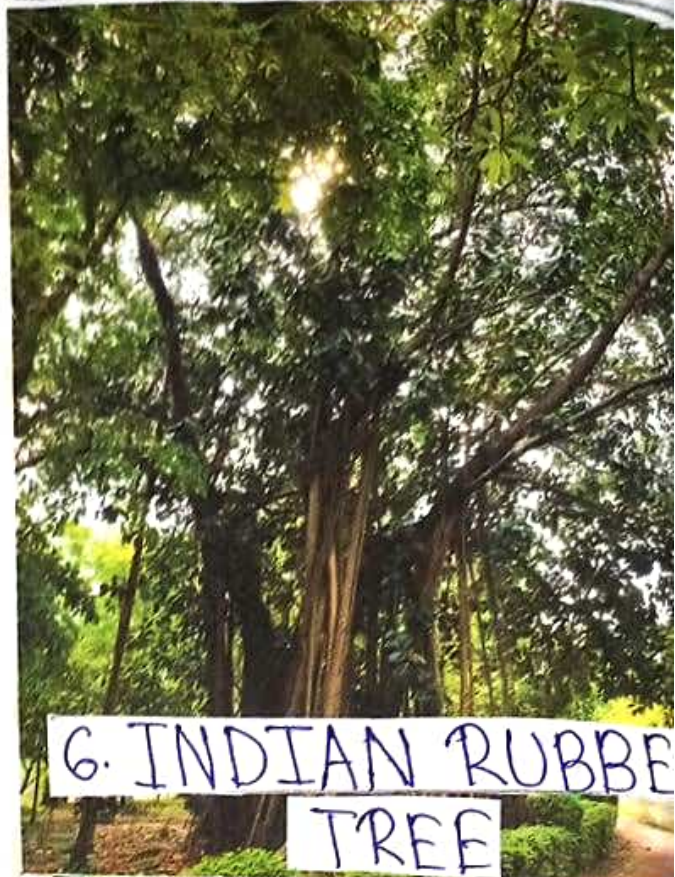 6. INDIAN RUBBE
TREE